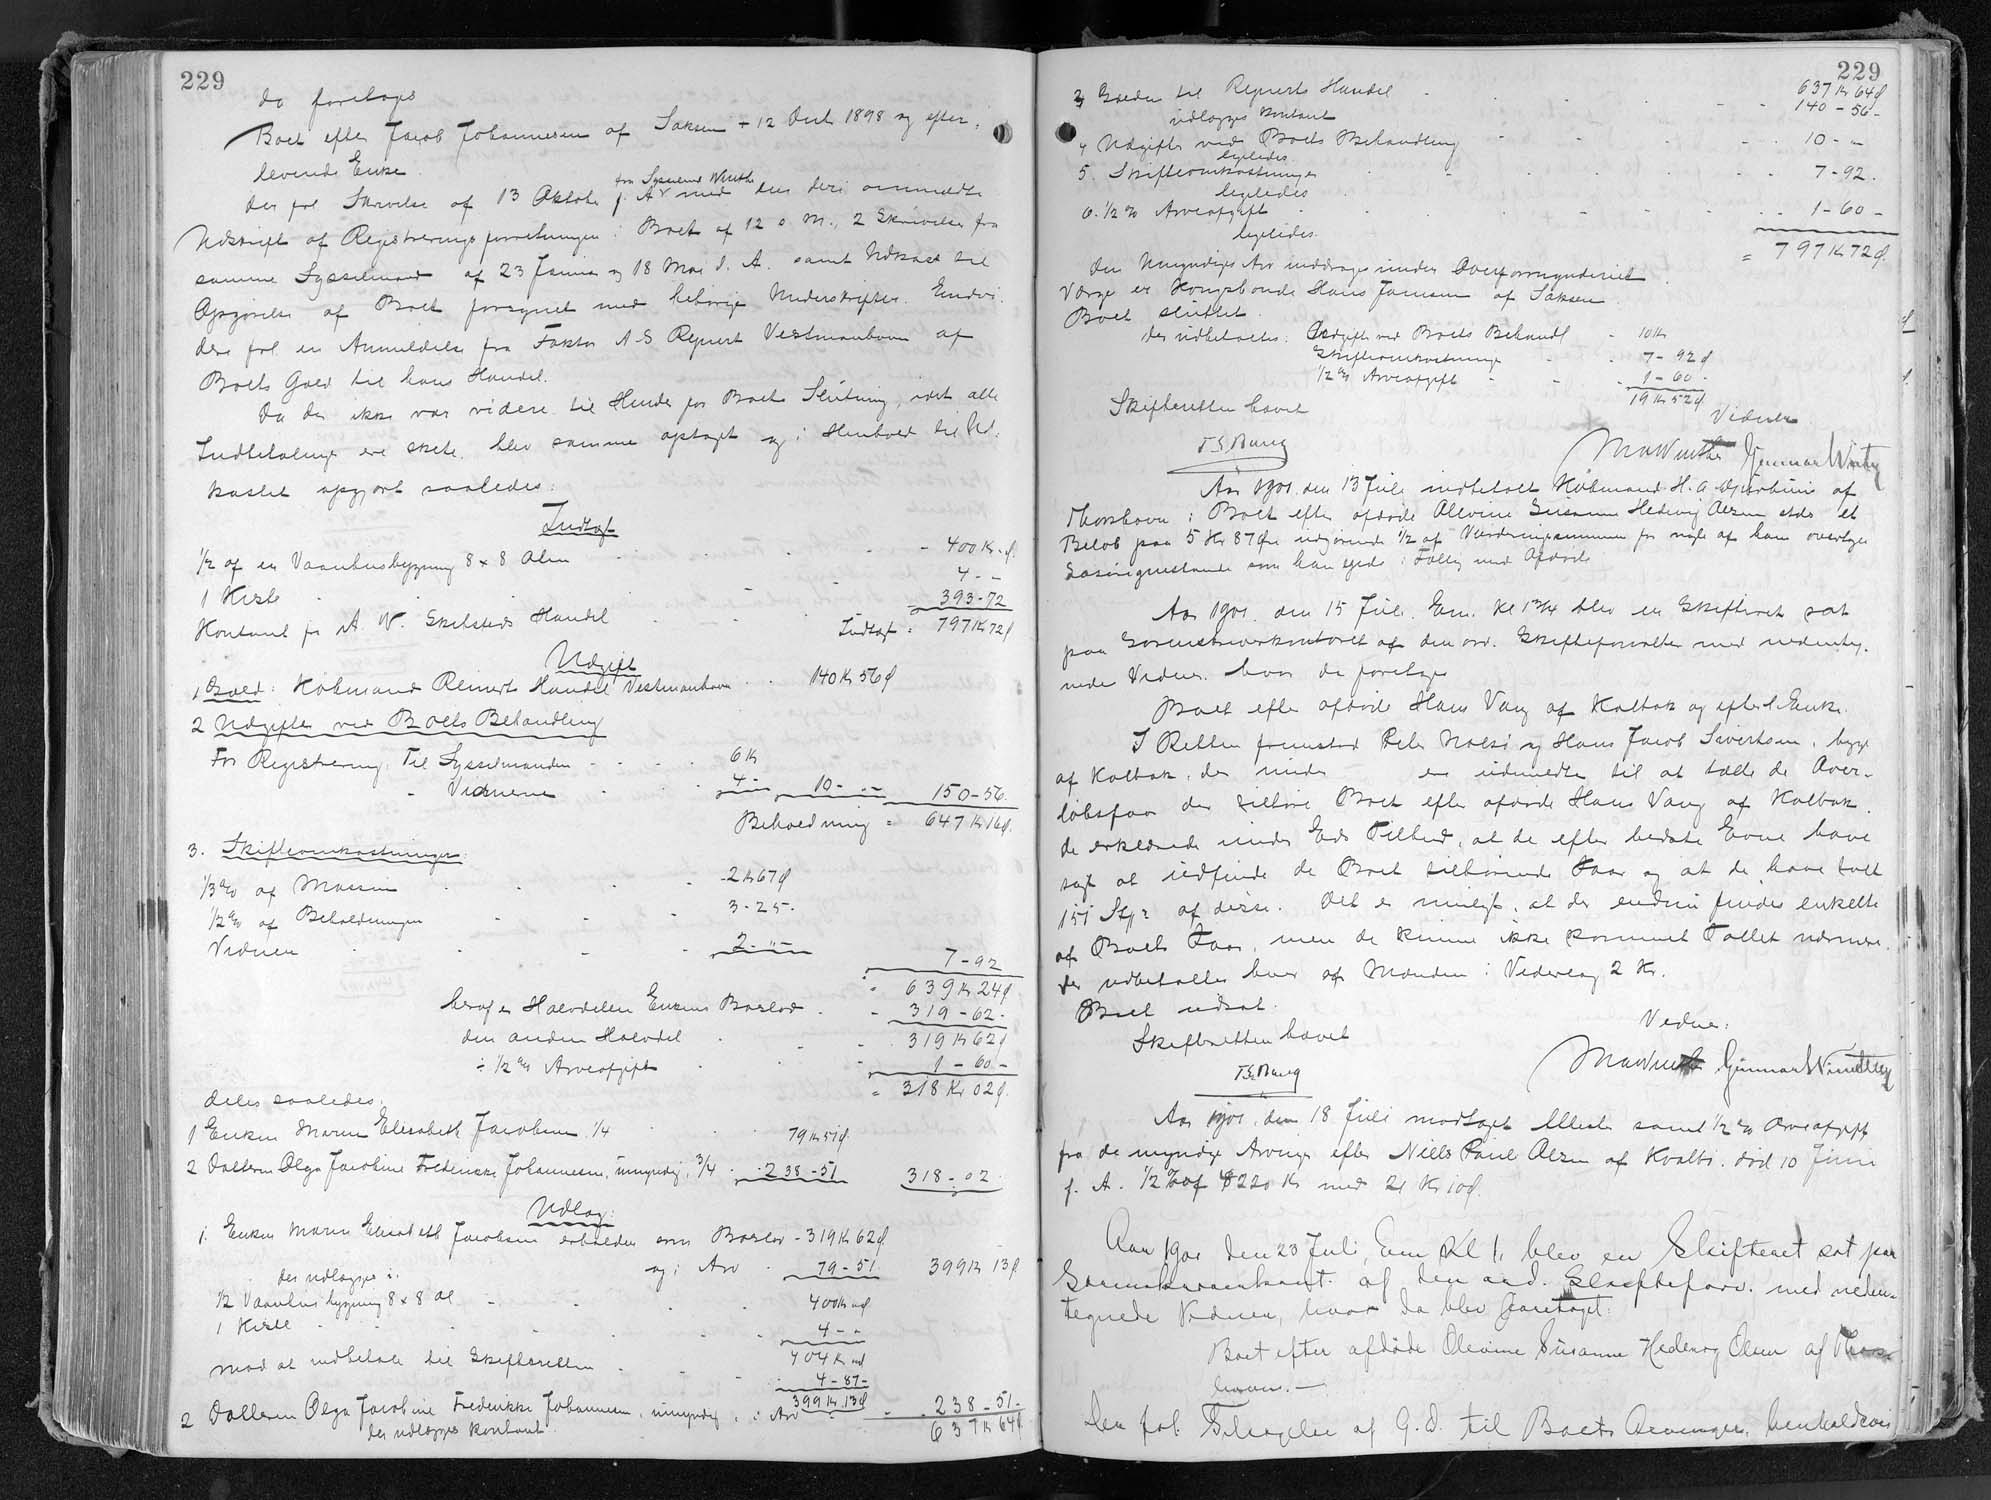 229
da foretoges
Boet efter Jacob Johannesen af Saksen + 12 Decb 1898 og efter-
levende Enke.
Der fol Skrivelse af 13 Oktober f. A. fra Sysselmd Winther med den deri ommeldte
Udskrift af Registreringsforretningen i Boet af 12 s. M., 2 Skrivelser fra
samme Sysselmand af 23 Januar og 18 Mai d. A. samt Udkast til
Opgjørelse af Boet forsynet med behørige Underskrifter. Endvi-
dere fol en Anmeldelse fra Faktor N S Reinert Vestmanhavn af
Boets Gæld til hans Handel.
Da der ikke var videre til Hinder for Boets Slutning, idet alle
Indbetalinger ere skete, blev samme optaget og i Henhold til Ud-
kastet opgjort saaledes:
Indtægt
1/2 af en Vaanhusbygning 8 x 8 Alen - 400 Kr. - Ø.
1 Kiste 4 - -
Kontant fr A. W. Skibsteds Handel 393 - 72
Indtægt = 797 Kr 72 Ø
Udgift
1 Gæld: Købmand Reinerts Handel Vestmanhavn 140 Kr 56 Ø
2 Udgifter ved Boets Behandling
For Registrering: Til Sysselmanden 6 Kr
- Vidnerne 4 - 10 - - 150 - 56.
Beholdning = 647 Kr 16 Ø.
3. Skifteomkostninger:
1/3 % af Massen 2 Kr 67 Ø
1/2 % af Beholdningen 3 - 25 -
Vidner 2 - - 7 - 92
= 639 Kr 24 Ø
heraf er Halvdelen Enkens Boslod - 319 - 62 -
den anden Halvdel 319 Kr 62 Ø
÷ 1/2 % Arveafgift 1 - 60 -
= 318 Kr 02 Ø.
deles saaledes:
1 Enken Maren Elisabeth Jacobsen 1/4 79 Kr 51 Ø
2 Datteren Olga Jacobine Frederikke Johannesen, umyndig, 3/4 238 - 51 318 - 02
Udlæg:
1. Enken Maren Elisabeth Jacobsen erholder som Boslod - 319 Kr 62 Ø
og i Arv 79 - 51 399 Kr 13 Ø
der udlægges i:
1/2 Vaanhusbygning 8 x 8 Al 400 Kr - Ø
1 Kiste 4 - -
404 Kr - Ø
mod at indbetale til Skifteretten 4 - 87 -
399 Kr. 13 Ø
2 Datteren Olga Jacobine Frederikke Johannesen, umyndig, i Arv 238 - 51 -
der udlægges kontant 637 Kr 64 Ø
229
637 Kr 64 Ø
3 Gælden til Reinerts Handel 140 - 56 -
udlægges kontant
4 Udgifter ved Boets Behandling 10 - -
ligeledes
5. Skifteomkostninger 7 - 92.
ligeledes
6. 1/2 % Arveafgift 1 - 60 -
ligeledes
= 797 Kr 72 Ø.
Den Umyndiges Arv inddrages under Overformynderiet.
Værge er Kongsbonde Hans Jamsen af Saksen.
Boet sluttet.
Der udbetaltes: Udgift ved Boets Behandl - 10 Kr
Skifteomkostninger 7 - 92 Ø
1/2 % Arveafgift 1 - 60 -
19 Kr 52 Ø
Skifteretten hævet
Vidner
T. S. Bang
Aar 1901, den 13 Juli indbetalt Købmand H. A. af
Thorshavn i Boet efter afdøde Olevine Susanne Hedevig Olsen et
Beløb paa 5 Kr 87 Øre udgjørende 1/2 af Vurderingssummen for nogle af ham overtagne
som han ejede i Fælles med Afdøde
Aar 1901, den 15 Juli, Em. Kl 1 3/4 blev en Skifteret sat
paa Sorenskriverkontoret af den ord. Skifteforvalter med undertegnede
Vidner, hvor da foretoges
Boet efter afdøde Hans Vang af Kolbak og efterl. Enke.
I Retten fremstod Peter Nolsø og Hans Jacob Sivertsen, begge
af Kolbak, der under ere udmeldte til at tælle de Over-
løbsfaar der tilhøre Boet efter afdøde Hans Vang af Kolbak.
De erklærede under Eds Tilbud, at de efter bedste Evne have
søgt at udfinde de Boet tilhørende Faar og at de have talt
151 Stkr af disse. Det er muligt, at der endnu findes enkelte
af Boets Faar, men de kunne ikke komme Tallet nærmere.
Der udbetaltes hver af Mændene i Vederlag 2 Kr.
Boet udsat.
Skifteretten hævet
Vidner:
T. S. Bang
Aar 1901, den 18 Juli modtaget Attester samt 1/2 % Arveafgift
fra de myndige Arvinger efter Niels Paul Olsen af Kvalbø, død 10 Juni
f. A. 1/2 % af 4220 Kr med 21 Kr 10 Ø.
Aar 1901 den 23 Juli, Em Kl 1, blev en Skifteret sat paa
Sorenskriverkont. af den ord. Skifteforv. med neden-
tegnede Vidner, hvor da blev foretaget:
Boet efter afdøde Olevine Susanne Hedevig Olsen af Thors-
havn. -
Der fol Tilsigelse af G. D. til Boets Arvinger, henholdsvis